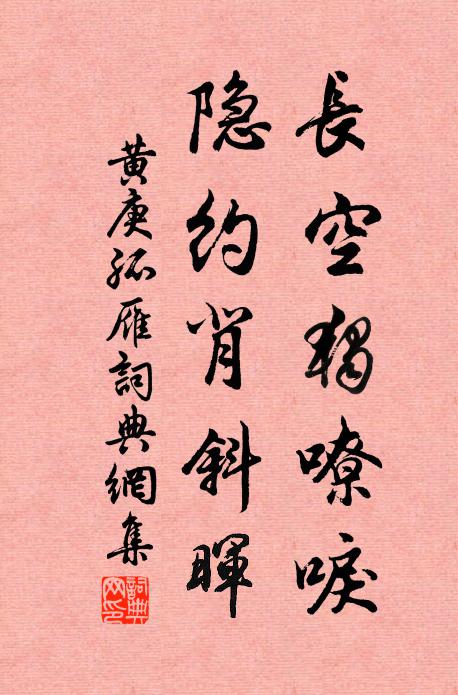 長空獨嘹唳
隐約背斜暉
黄庚孤雁詞典網集
詞典網印